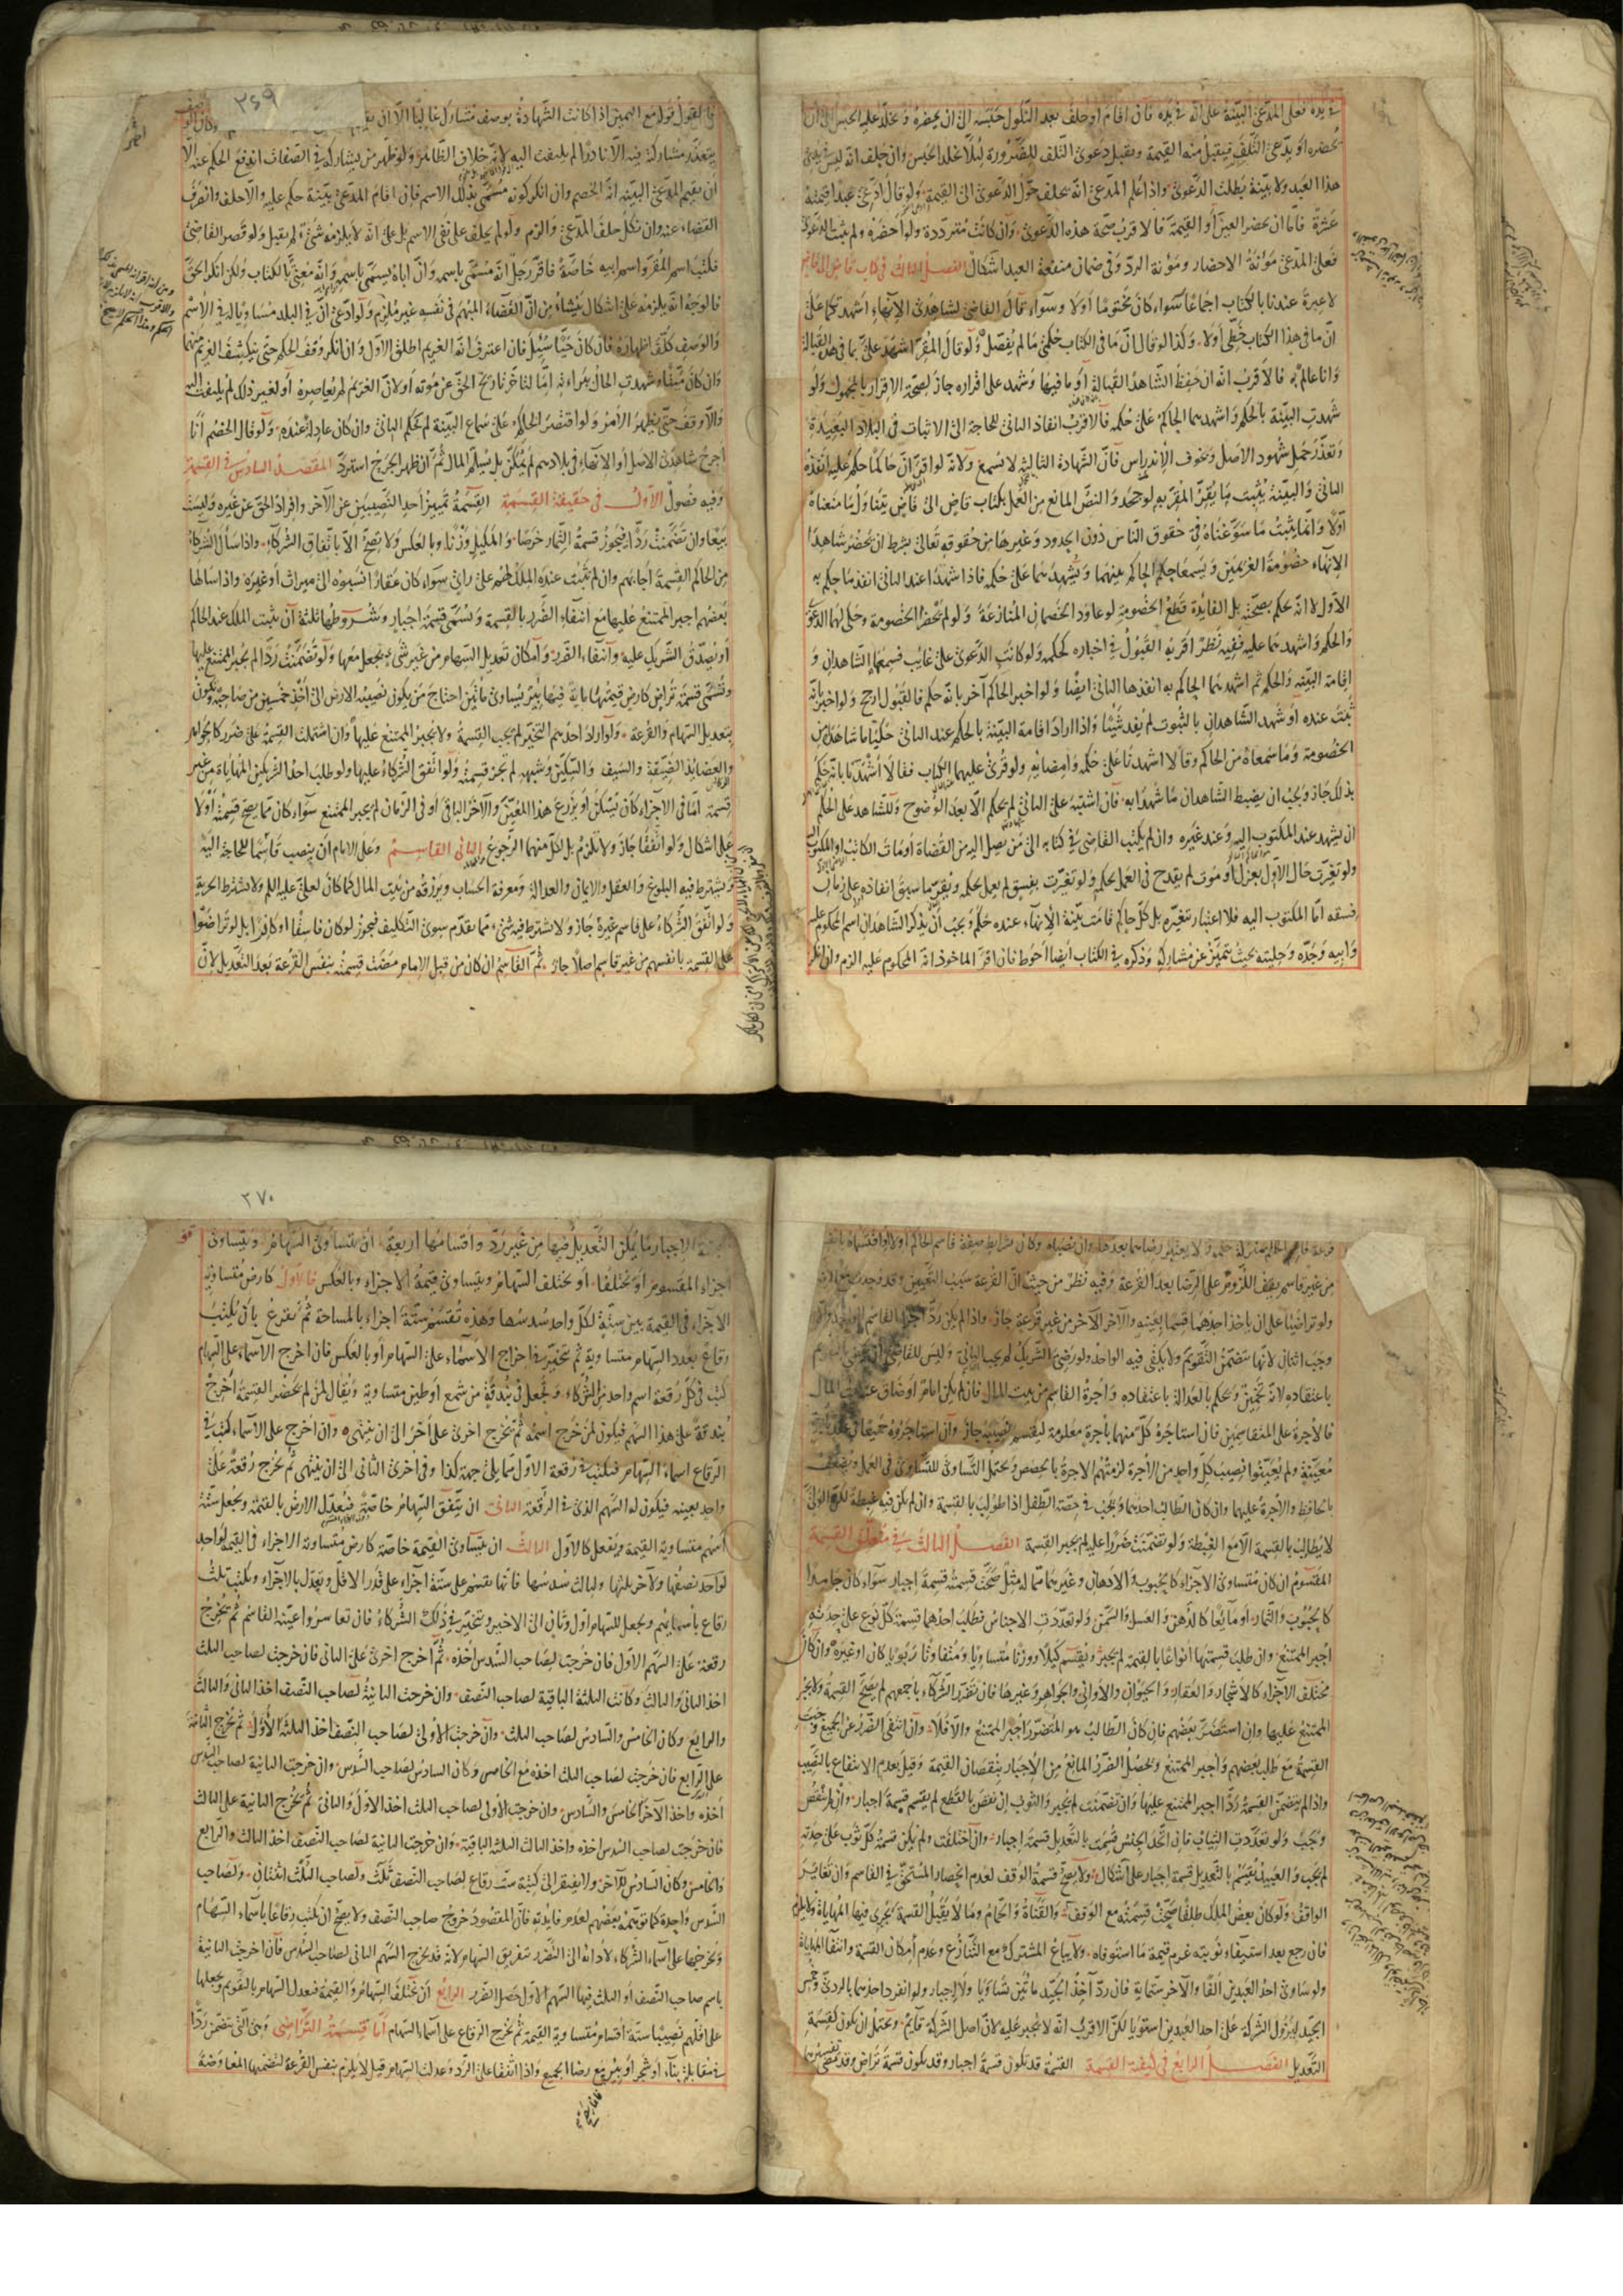 في يده فعلى المدعي البينة على انه في يده فان اقام او حلف بعد النكول حبسه الى ان يحضره ويخلد عليه الحبس الى ان
يحضره او يدعي التلف فيقبل منه القيمة ويقبل دعوى التلف للضرورة لئلا يخلد الحبس وان حلف انه ليس في يدي
هذا العبد ولا بينة بطلت الدعوى واذا علم المدعي انه يحلف حول الدعوى الى القيمة ولو قال ادعي عبدا قيمته
عشرة فاما ان يحضر العين او القيمة فالاقرب صحة هذه الدعوى وان كانت مترددة ولو احضره ولم يثبت الدعوى
فعلى المدعي مؤنة الاحضار ومؤنة الرد وفي ضمان منفعة العبد اشكال الفصل الثالث في كتاب قاض الى قاض
لا عبرة عندنا بالكتاب اجماعا سواء كان مختوما او لا وسواء قال القاضي لشاهدي الانهاء اشهدكما على
ان ما في هذا الكتاب خطي او لا وكذا لو قال ان ما في الكتاب حكمي ما لم يفصل ولو قال المقر اشهد علي بما في هذه القبالة
وانا عالم به فالاقرب انه ان حفظ الشاهد القبالة او ما فيها وشهد على اقراره جاز لصحة الاقرار بالمجهول ولو
شهدت البينة بالحكم واشهدهما الحاكم على حكمه فالاقرب انفاذ الثاني للحاجة الى الاثبات في البلاد البعيدة
وتعذر حمل شهود الاصل وخوف الاندراس فان الشهادة الثالثة لا تسمع ولانه لو اقر ان حاكما حكم عليه انفذه
الثاني والبينة يثبت ما يقر المقر به لو جحد والنص المانع من العمل بكتاب قاض الى قاض يتناول ما منعناه
اولا وانما يثبت ما سوغناه في حقوق الناس دون الحدود وغيرها من حقوقه تعالى بشرط ان يحضر شاهدا
الانهاء خصومة الغريمين ويسمعا حكم الحاكم بينهما ويشهدهما على حكمه فاذا شهدا عند الثاني انفذ ما حكم به
الاول لا انه يحكم بصحته بل الفايدة قطع الخصومة لو عاود الخصمان المنازعة ولو لم يحضرا الخصومة وحكى لهما الدعوى
والحكم واشهدهما عليه ففيه نظر اقربه القبول في اخباره كحكمه ولو كانت الدعوى على غايب فسمعها الشاهدان و
اقامة البينة والحكم ثم اشهدهما الحاكم به انفذها الثاني ايضا ولو اخبر الحاكم آخر بانه حكم فالقبول ارجح ولو اخبر بانه
ثبت عنده او شهد الشاهدان بالثبوت لم يفد شيئا واذا ارادا اقامة البينة بالحكم عند الثاني حكيا ما شاهداه من
الخصومة وما سمعاه من الحاكم وقالا اشهدنا على حكمه وامضايه ولو قرئ عليهما الكتاب فقالا اشهدنا بانه حكم
بذلك جاز ويجب ان يضبط الشاهدان ما شهدا به فان اشتبه على الثاني لم يحكم الا بعد الوضوح وللشاهد على الحكم
ان يشهد عند المكتوب اليه وعند غيره وان لم يكتب القاضي في كتابه الى من يصل اليه من القضاة او مات الكاتب او المكتوب اليه
ولو تغيرت حال الاول بعزل او موت لم يقدح في العمل بحكمه ولو تغيرت بفسق لم يعمل بحكمه ويقر ما سبق انفاذه على زمان
فسقه اما المكتوب اليه فلا اعتبار بتغيره بل كل حاكم قامت بينة الانهاء عنده حكم ويجب ان يذكر الشاهدان اسم المحكوم عليه
وابيه وجده وحليته بحيث يتميز عن مشاركه وذكره في الكتاب ايضا احوط فان اقر الماخوذ انه المحكوم عليه الزم وان انكر
٣٦٩
فالقول قوله مع اليمين اذا كانت الشهادة بوصف مشارك غالبا الا ان يقيم
يتعذر مشاركة فيه الا نادرا لم يلتفت اليه لانه خلاف الظاهر ولو ظهر من يشاركه في الصفات اندفع الحكم عنه الا
ان يقيم المدعي البينة انه الخصم وان انكر كونه مسمى بذلك الاسم فان اقام المدعي بينة حكم عليه والا حلف وانصرف
القضاء عنه وان نكل حلف المدعي والزم ولو لم يحلف على نفي الاسم بل على انه لا يلزمه شيء لم يقبل ولو قصر القاضي
فكتب اسم المقر واسم ابيه خاصة فاقر رجل انه مسمى باسمه وان اباه يسمى باسمه وانه معني بالكتاب ولكن انكر الحق
فالوجه انه يلزمه على اشكال ينشأ من ان القضاء المبهم في نفسه غير ملزم ولو ادعى ان في البلد مساويا له في الاسم
والوصف كلف اظهاره فان كان حيا سئل فان اعترف انه الغريم اطلق الاول وان انكر وقف الحكم حتى ينكشف الغريم منهما
وان كان ميتا وشهدت الحال ببراءته اما لتاخر تاريخ الحق عن موته او لان الغريم لم يعاصره او لغير ذلك لم يلتفت اليه
والا وقف حتى يظهر الامر ولو اقتصر الحاكم على سماع البينة لم يحكم الثاني وان كان عادلة عنده ولو قال الخصم انا
اجرح شاهدي الاصل او الانهاء في بلادهم لم يمكن بل يسلم المال ثم ان ظهر الجرح استرد المقصد السادس في القسمة
وفيه فصول الاول في حقيقة القسمة القسمة تمييز احد النصيبين عن الآخر وافراد الحق عن غيره وليست
بيعا وان تضمنت ردا فيجوز قسمة الثمار خرصا والمكيل وزنا وبالعكس ولا يصح الا باتفاق الشركاء واذا سأل الشركاء
من الحاكم القسمة اجابهم وان لم يثبت عنده الملك لهم على راي سواء كان عقارا نسبوه الى ميراث او غيره واذا سالها
بعضهم اجبر الممتنع عليها مع انتفاء الضرر بالقسمة وتسمى قسمة اجبار وشروطها ثلثة ان يثبت الملك عند الحاكم
او يصدق الشريك عليه وانتفاء الضرر وامكان تعديل السهام من غير شيء يجعل معها ولو تضمنت ردا لم يجبر الممتنع عليها
وتسمى قسمة تراض كارض قيمتها ماية فيها بئر يساوي مأتين احتاج من يكون نصيبه الارض الى اخذ خمسين من صاحبه وتكون
بتعديل السهام والقرعة ولو اراد احدهم التخير لم يجب القسمة ولا يجبر الممتنع عليها وان اشتملت القسمة على ضرر كالجواهر
والعضايد الضيقة والسيف والسكين وشبهه لم يجز قسمته ولو اتفق الشركاء عليها ولو طلب احد الشريكين المهاياة من غير
قسمة اما في الاجزاء كان يسكن او يزرع هذا المعين والآخر الباقي او في الزمان لم يجبر الممتنع سواء كان مما يصح قسمته او لا
على اشكال ولو اتفقا جاز ولا تلزم بل لكل منهما الرجوع الثاني القاسم وعلى الامام ان ينصب قاسما للحاجة اليه
ويشترط فيه البلوغ والعقل والايمان والعدالة ومعرفة الحساب ويرزقه من بيت المال كما كان لعلي عليه السلم ولا يشترط الحرية
ولو اتفق الشركاء على قاسم غيره جاز ولا يشترط فيه شيء مما تقدم سوى التكليف فيجوز لو كان فاسقا او كافرا بل لو تراضوا
على القسمة بانفسهم من غير قاسم اصلا جاز ثم القاسم ان كان من قبل الامام مضت قسمته بنفس القرعة بعد التعديل لان
قرعة قاسم الحاكم بمنزلة حكمه ولا يعتبر رضاهما بعدها وان نصباه وكان بشرايط صفة قاسم الحاكم او لا او اقتسماه بانفسهما
من غير قاسم يقف اللزوم على الرضا بعد القرعة وفيه نظر من حيث ان القرعة سبب التعيين وقد وجدت مع الرضا
ولو تراضيا على ان ياخذ احدهما قسما بعينه والآخر الآخر من غير قرعة جاز واذا لم يكن رد اجزا القاسم الواحد والا
وجب اثنان لانها تتضمن التقويم ولا يكفي فيه الواحد ولو رضي الشريك لم يجب الثاني وليس للقاضي ان يقضي بالقسمة
باعتقاده لانه تخمين ويحكم بالعدالة باعتقاده واجرة القاسم من بيت المال فان لم يكن امام او ضاق عنه بيت المال
فالاجرة على المتقاسمين فان استاجره كل منهما باجرة معلومة ليقسم نصيبه جاز وان استاجروه جميعا في عقد باجرة
معينة ولم يعينوا نصيب كل واحد من الاجرة لزمتهم الاجرة بالحصص ويحتمل التساوي للتساوي في العمل ويضعف
بالحافظ والاجرة عليهما وان كان الطالب احدهما ويجب في حصة الطفل اذا طولب بالقسمة وان لم يكن فيه غبطة لكن الولي
لا يطالب بالقسمة الا مع الغبطة ولو تضمنت ضررا عليه لم يجبر القسمة الفصل الثالث في متعلق القسمة
المقسوم ان كان متساوي الاجزاء كالحبوب والادهان وغيرهما مما له مثل صحت قسمته قسمة اجبار سواء كان جامدا
كالحبوب والثمار او مايعا كالدهن والعسل والسمن ولو تعددت الاجناس فطلب احدهما قسمة كل نوع على حدته
اجبر الممتنع وان طلب قسمتها انواعا بالقيمة لم يجبر ويقسم كيلا ووزنا متساويا ومتفاوتا ربويا كان او غيره وان كان
مختلف الاجزاء كالاشجار والعقار والحيوان والاواني والجواهر وغيرها فان تضرر الشركاء باجمعهم لم يصح القسمة ولا يجبر
الممتنع عليها وان استضر بعضهم فان كان الطالب هو المتضرر اجبر الممتنع والا فلا وان انتفى الضرر عن الجميع وجبت
القسمة مع طلب بعضهم واجبر الممتنع ويحصل الضرر المانع من الاجبار بنقصان القيمة وقيل بعدم الانتفاع بالنصيب
واذا لم يتضمن القسمة ردا اجبر الممتنع عليها وان تضمنت لم يجبر والثوب ان نقص بالقطع لم يقسم قسمة اجبار وان لم ينقص
وجبت ولو تعددت الثياب فان اتحد الجنس قسمت بالتعديل قسمة اجبار وان اختلفت ولم يكن قسمة كل ثوب على حدته
لم يجب والعبيد يقسم بالتعديل قسمة اجبار على اشكال ولا يصح قسمة الوقف لعدم انحصار المستحق في القاسم وان تغاير
الواقف ولو كان بعض الملك طلقا صحت قسمته مع الوقف والقناة والحمام وما لا يقبل القسمة يجري فيها المهاياة ولا يلزم
فان رجع بعد استيفاء نوبته غرم قيمة ما استوفاه ولا يباع المشترك مع التنازع وعدم امكان القسمة وانتفاء المهاياة
ولو ساوى احد العبدين الفا والآخر ستماية فان رد آخذ الجيد مأتين تساويا ولا اجبار ولو انفرد احدهما بالردي وخمس
الجيد ليزول الشركة على احد العبدين استويا لكن الاقرب انه لا يجبر عليه لان اصل الشركة قايم ويحتمل ان يكون كقسمة
التعديل الفصل الرابع في كيفية القسمة القسمة قد تكون قسمة اجبار وقد يكون قسمة تراض وقد مضى تفسيرهما
٢٧٠
وقسمة الاجبار ما يمكن التعديل فيها من غير رد واقسامها اربعة ان يتساوى السهام ويتساوى
اجزاء المقسوم او يختلفا او يختلف السهام ويتساوى قيمة الاجزاء وبالعكس فالاول كارض متساوية
الاجزاء في القيمة بين ستة لكل واحد سدسها وهذه تقسم ستة اجزاء بالمساحة ثم يقرع بان يكتب
رقاع بعدد السهام متساوية ثم يتخير في اخراج الاسماء على السهام او بالعكس فان اخرج الاسماء على السهام
كتب في كل رقعة اسم واحد من الشركاء ويجعل في بندقة من شمع او طين متساوية ويقال لمن لم يحضر القسمة اخرج
بندقة على هذا السهم فيكون لمن خرج اسمه ثم يخرج اخرى على آخر الى ان ينتهي وان اخرج على الاسماء كتب في
الرقاع اسماء السهام فيكتب في رقعة الاول مما يلي جهة كذا وفي اخرى الثاني الى ان ينتهي ثم يخرج رقعة على
واحد بعينه فيكون له السهم الذي في الرقعة الثاني ان يتفق السهام خاصة فيعدل الارض بالقيمة ويجعل ستة
اسهم متساوية القيمة ويفعل كالاول الثالث ان يتساوى القيمة خاصة كارض متساوية الاجزاء في القيمة لواحد
لواحد نصفها ولآخر ثلثها ولثالث سدسها فانها تقسم على ستة اجزاء على قدر الاقل ويعدل بالاجزاء ويكتب ثلث
رقاع باسمايهم ويجعل للسهام اول وثان الى الاخير ويتخير في ذلك الشركاء فان تعاسروا عينه القاسم ثم يخرج
رقعة على السهم الاول فان خرجت لصاحب السدس اخذه ثم اخرج اخرى على الثاني فان خرجت لصاحب الثلث
اخذ الثاني والثالث وكانت الثلثة الباقية لصاحب النصف وان خرجت الثانية لصاحب النصف اخذ الثاني والثالث
والرابع وكان الخامس والسادس لصاحب الثلث وان خرجت الاولى لصاحب النصف اخذ الثلثة الاول ثم تخرج الثانية
على الرابع فان خرجت لصاحب الثلث اخذه مع الخامس وكان السادس لصاحب السدس وان خرجت الثانية لصاحب السدس
اخذه واخذ الآخر الخامس والسادس وان خرجت الاولى لصاحب الثلث اخذ الاول والثاني ثم يخرج الثانية على الثالث
فان خرجت لصاحب السدس اخذه واخذ الثالث الثلثة الباقية وان خرجت الثانية لصاحب النصف اخذ الثالث والرابع
والخامس وكان السادس للآخر ولا يفتقر الى كتبة ست رقاع لصاحب النصف ثلث ولصاحب الثلث اثنتان ولصاحب
السدس واحدة كما توهمه بعضهم لعدم فايدته فان المقصود خروج صاحب النصف ولا يصح ان يكتب رقاعا باسماء السهام
ويخرجها على اسماء الشركاء لادائه الى التضرر بتفريق السهام لانه قد يخرج السهم الثاني لصاحب السدس فان اخرجت الثانية
باسم صاحب النصف او الثلث فيها السهم الاول حصل الضرر الرابع ان تختلف السهام والقيمة فيعدل السهام بالتقويم ويجعلها
على اقلهم نصيبا ستة اقسام متساوية القيمة ثم يخرج الرقاع على اسماء السهام اما قسمة التراضي وهي التي تتضمن ردا
في مقابلة بناء او شجر او بئر مع رضا الجميع واذا اتفقا على الرد وعدلت السهام قيل لا يلزم بنفس القرعة لتضمنها المعاوضة